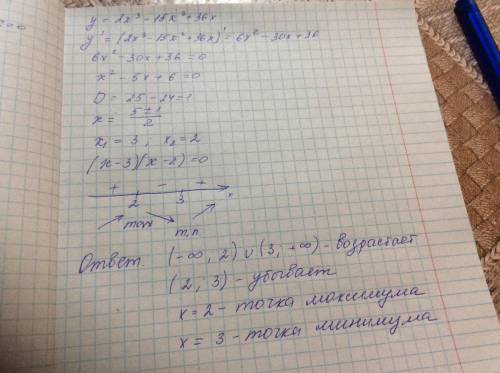 y = 2x³ - 15x² + 36x
y' = (2x³ - 15x² + 36x)' = 6x² - 30x + 36
6x² - 30x + 36 = 0
x² - 5x + 6 = 0
D = 25 - 24 = 1
x = (5 ± 1)/2
x₁ = 3 , x₂ = 2
(x-3)(x-2) = 0
+ - +
2 3 x
max min
Ответ. (-∞, 2) ∪ (3, +∞) - возрастает
(2, 3) - убывает
x = 2 - точка максимума
x = 3 - точка минимума